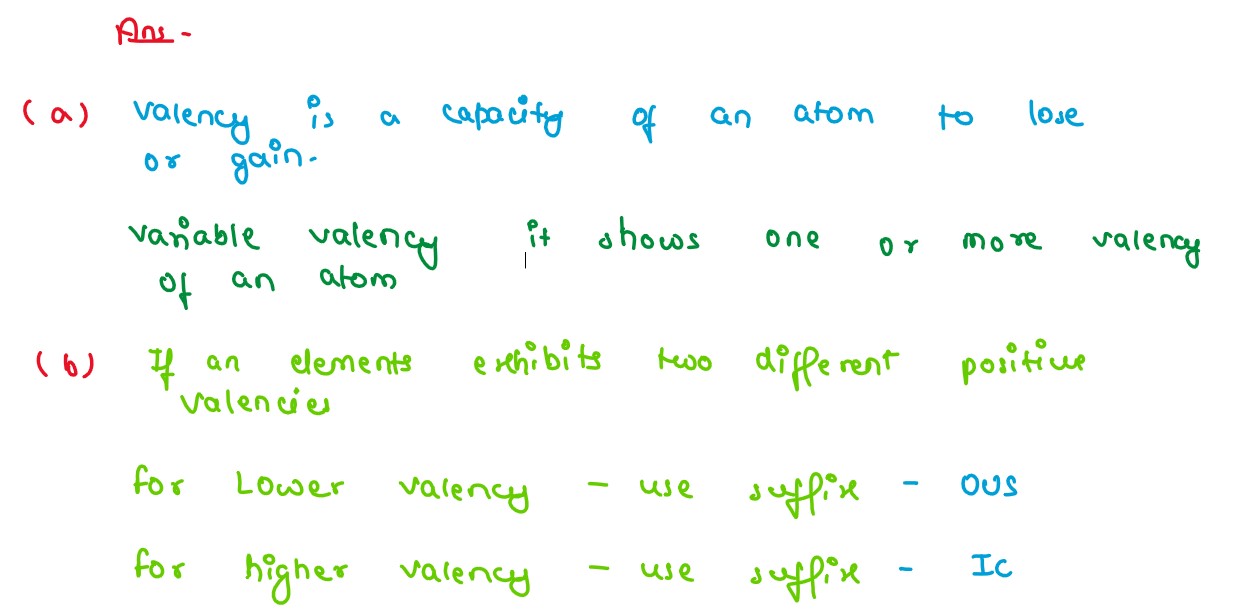 Ans -
(a) valency is a capacity of an atom to lose
or gain.
variable valency it shows one or more valency
of an atom
(b) If an elements exhibits two different positive
valencies
for Lower valency - use suffix - OUS
for higher valency - use suffix - Ic